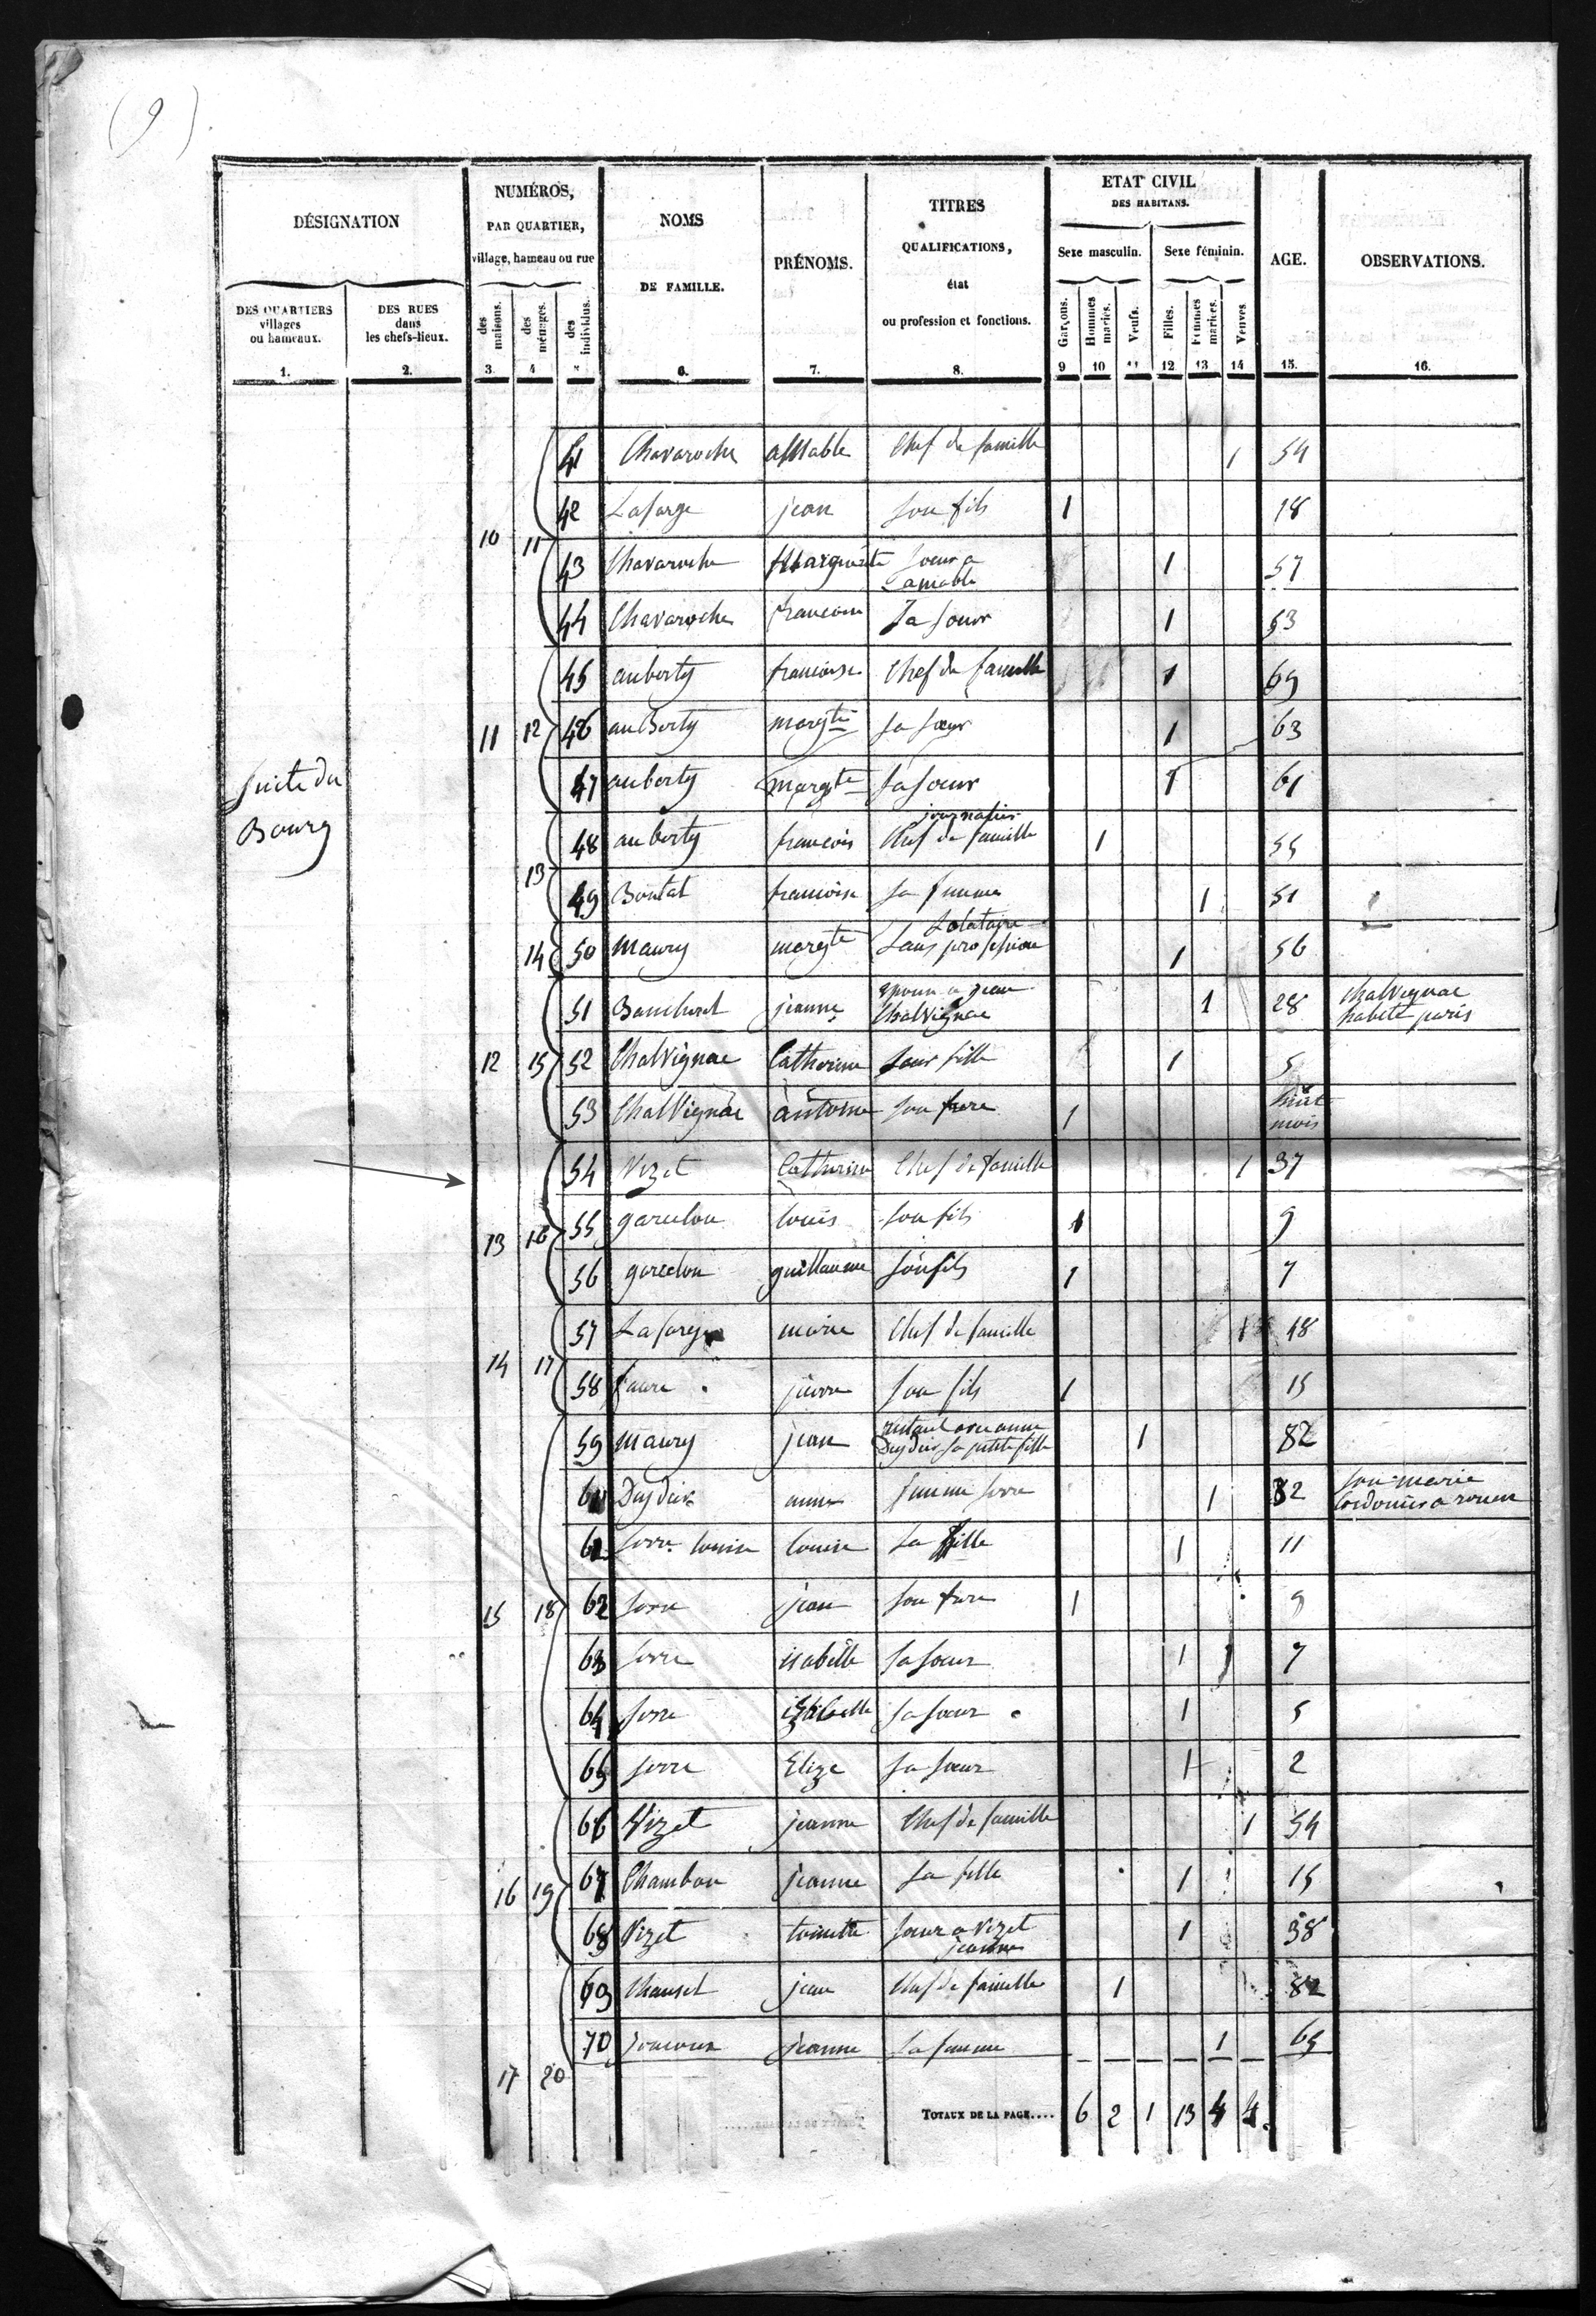 (9)
DÉSIGNATION
NUMÉROS,
PAR QUARTIER,
village, hameau ou rue
NOMS
DE FAMILLE.
PRÉNOMS.
TITRES
QUALIFICATIONS,
état
ou profession et fonctions.
ETAT CIVIL
DES HABITANS.
Sexe masculin. Sexe féminin.
AGE.
OBSERVATIONS.
DES QUARTIERS
villages
ou hameaux.
DES RUES
dans
les chefs-lieux.
des maisons.
des ménages.
des individus.
Garçons.
Hommes mariés.
Veufs.
Filles.
Femmes mariées.
Veuves
1. 2. 3. 4 6. 7. 8. 9 10 11 12 13 14 15. 16.
Suite du
Bourg
41 Chavaroche Chef de famille 1 54
42 Lafarge jean son fils 1 18
10 11
43 Chavaroche Marguerite soeur a
amable 1 57
44 Chavaroche francoise Sa soeur 1 53
45 auberty francoise Chef de famille 1 69
11 12 46 auberty margte sa soeur 1 63
47 auberty margte sa soeur 1 61
journalier
48 auberty francois Chef de famille 1 55
13
49 Boutat francoise sa femme 1 51
14 50 Maury margte sans profession 1 56
51 jeanne epouse a jean
Chalvignac 1 28 Chalvignac
habite paris
12 15 52 Chalvignac Catherine leur fille 1 5
53 Chalvignac antoine son frere 1 huit
mois
54 Vizet Catherine Chef de famille 1 37
55 louis son fils 1 9
13 16
56 guillaume son fils 1 7
57 Lafarge marie Chef de famille 1 48
14 17
58 faure pierre son fils 1 15
59 Maury jean restant avec anne
sa petite fille 1 82
60 anne femme serre 1 32 son marie
cordonier a rouen
61 serre louise louise sa fille 1 11
15 18 62 serre jean son frere 1 9
63 serre isabelle sa soeur 1 7
64 serre sa soeur 1 5
65 serre Elize sa soeur 1 2
66 Vizet jeanne Chef de famille 1 54
67 Chambon jeanne sa fille 1 15
16 19
68 Vizet toinette soeur a Vizet
jeanne 1 38
69 Chauset jean Chef de famille 1 82
70 jeanne sa femme 1 65
17 20
TOTAUX DE LA PAGE.... 6 2 1 13 4 4.